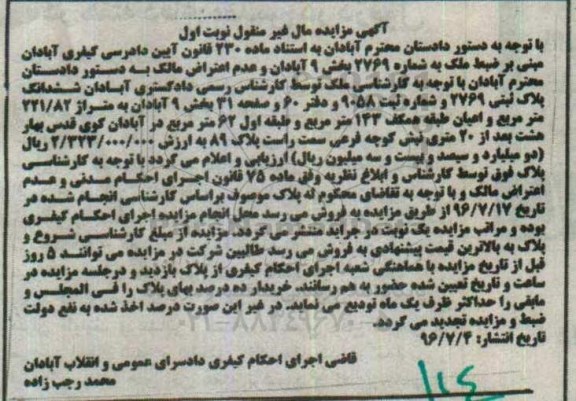 آگهی مزایده مال غیر منقول نوبت اول
با توجه به دستور دادستان محترم آبادان به استناد ماده ۲۳۰ قانون آیین دادرسی کیفری آبادان
مبنی بر ضبط ملک به شماره ۲۷۶۹ بخش ۹ آبادان و عدم اعتراض مالک به دستور دادستان
محترم آبادان با توجه به کارشناسی ملک توسط کارشناس رسمی دادگستری آبادان ششدانگ
پلاک ثبتی ۲۷۶۹ و شماره ثبت ۹۰۵۸ و دفتر ۶۰ و صفحه ۳۱ بخش ۹ آبادان به متراژ ۲۲۱/۸۲
متر مربع و اعیان طبقه همکف ۱۴۳ متر مربع و طبقه اول ۶۲ متر مربع در آبادان کوی قدس بهار
هشت بعد از ۲۰ متری نبش کوچه فرعی سمت راست پلاک ۸۹ به ارزش ۲/۳۲۳/۰۰۰/۰۰۰ ریال
(دو میلیارد و سیصد و بیست و سه میلیون ریال) ارزیابی و اعلام می گردد با توجه به کارشناسی
پلاک فوق توسط کارشناس و ابلاغ نظریه وفق ماده ۷۵ قانون اجرای احکام مدنی و عدم
اعتراض مالک و با توجه به تقاضای محکوم له پلاک موصوف براساس کارشناسی انجام شده در
تاریخ ۹۶/۷/۱۷ از طریق مزایده به فروش می رسد محل انجام مزایده اجرای احکام کیفری
بوده و مراتب مزایده یک نوبت در جراید منتشر می گردد. مزایده از مبلغ کارشناسی شروع و
پلاک به بالاترین قیمت پیشنهادی به فروش می رسد طالبین شرکت در مزایده می توانند ۵ روز
قبل از تاریخ مزایده با هماهنگی شعبه اجرای احکام کیفری از پلاک بازدید و درجلسه مزایده در
ساعت و تاریخ تعیین شده حضور به هم رسانند. خریدار ده درصد بهای پلاک را فی المجلس و
مابقی را حداکثر ظرف یک ماه تودیع می نماید. در غیر این صورت درصد اخذ شده به نفع دولت
ضبط و مزایده تجدید می گردد.
تاریخ انتشار: ۹۶/۷/۴
قاضی اجرای احکام کیفری دادسرای عمومی و انقلاب آبادان
محمد رجب زاده
۱۱۴